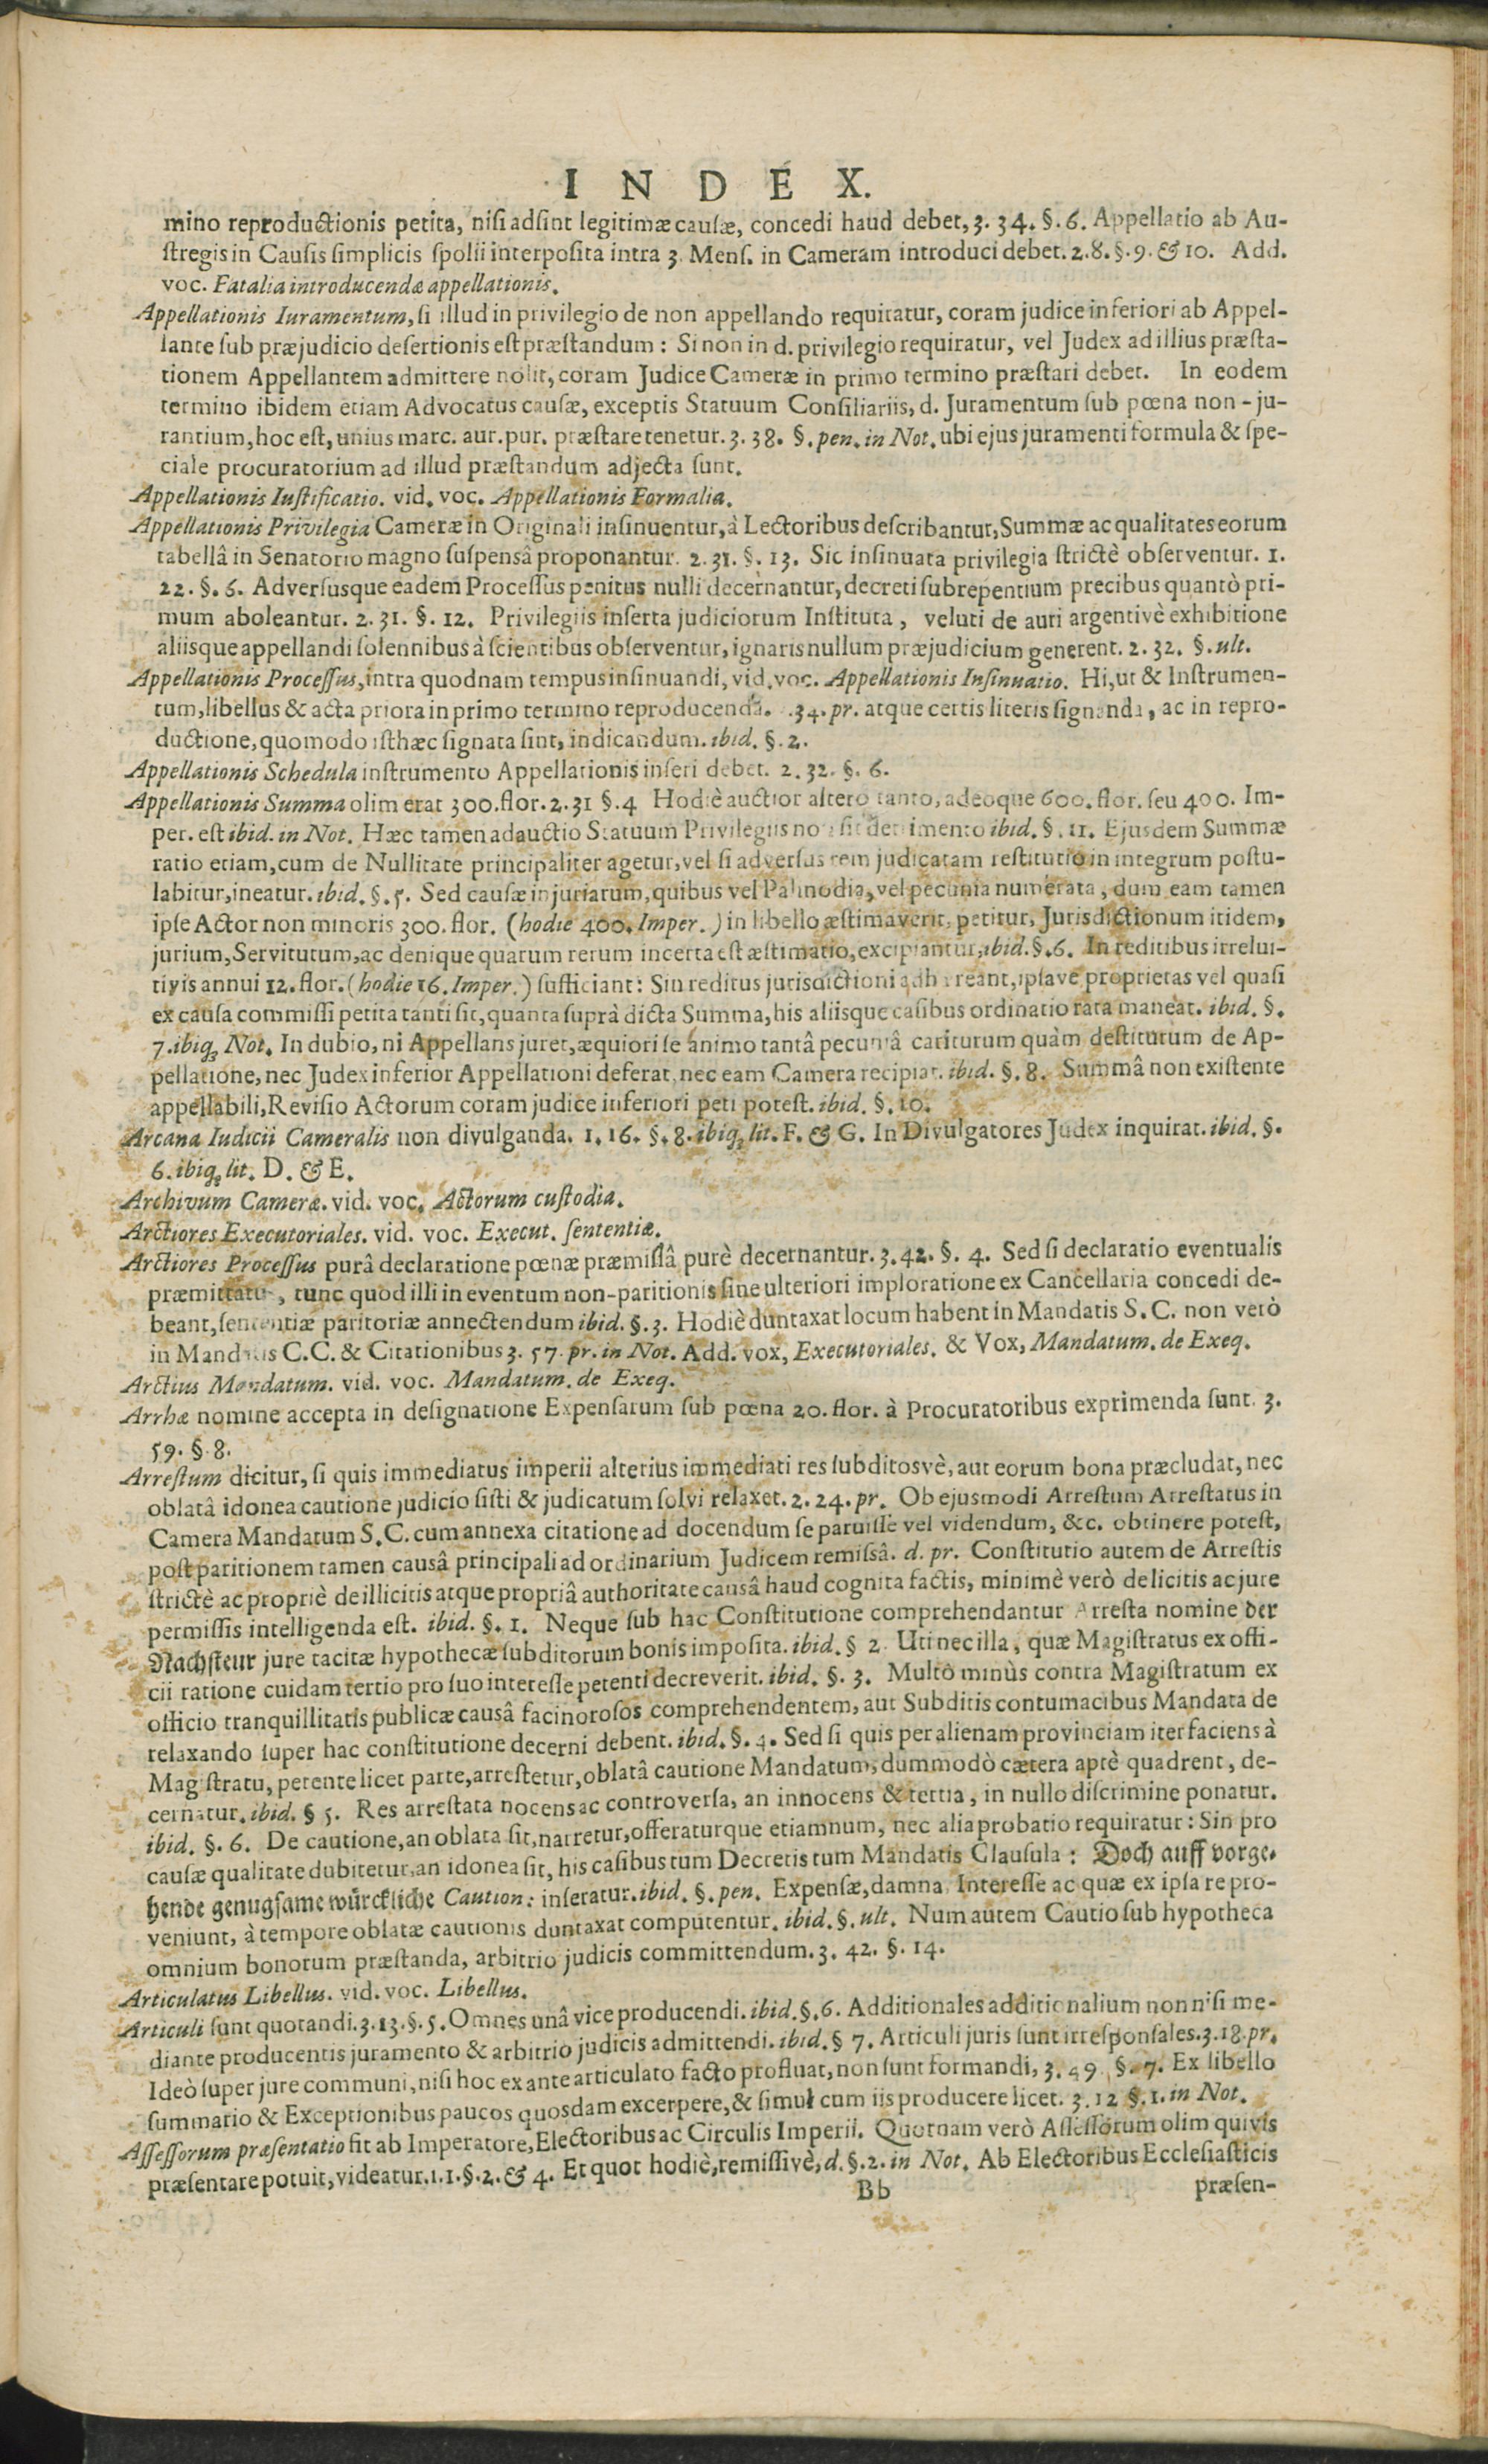 INDEX.
mino reproductionis petita, nisi adsint legitimæ causæ, concedi haud debet, 3. 34. §. 6. Appellatio ab Au-
stregis in Causis simplicis spolii interposita intra 3. Mens. in Cameram introduci debet. 2. 8. §. 9. & 10. Add.
voc. Fatalia introducendæ appellationis.
Appellationis Iuramentum, si illud in privilegio de non appellando requiratur, coram judice inferiori ab Appel-
lante sub præjudicio desertionis est præstandum: Si non in d. privilegio requiratur, vel Judex ad illius præsta-
tionem Appellantem admittere nolit, coram Judice Cameræ in primo termino præstari debet. In eodem
termino ibidem etiam Advocatus causæ, exceptis Statuum Consiliariis, d. Juramentum sub pœna non-ju-
rantium, hoc est, unius marc. aur. pur. præstare tenetur. 3. 38. §. pen. in Not. ubi ejus juramenti formula & spe-
ciale procuratorium ad illud præstandum adjecta sunt.
Appellationis Iustificatio. vid. voc. Appellationis Formalia.
Appellationis Privilegia Cameræ in Originali insinuentur, à Lectoribus describantur, Summæ ac qualitates eorum
tabellâ in Senatorio magno suspensâ proponantur. 2. 31. §. 13. Sic insinuata privilegia strictè observentur. 1.
22. §. 6. Adversusque eadem Processus penitus nulli decernantur, decreti subrepentium precibus quantò pri-
mum aboleantur. 2. 31. §. 12. Privilegiis inserta judiciorum Instituta, veluti de auri argentivè exhibitione
aliisque appellandi solennibus à scientibus observentur, ignaris nullum præjudicium generent. 2. 32. §. ult.
Appellationis Processus, intra quodnam tempus insinuandi, vid. voc. Appellationis Insinuatio. Hi, ut & Instrumen-
tum, libellus & acta priora in primo termino reproducenda. .34. pr. atque certis literis signanda, ac in repro-
ductione, quomodo isthæc signata sint, indicandum. ibid. §. 2.
Appellationis Schedula instrumento Appellationis inseri debet. 2. 32. §. 6.
Appellationis Summa olim erat 300. flor. 2. 31 §. 4 Hodiè auctior altero tanto, adeoque 600. flor. seu 400. Im-
per. est ibid. in Not. Hæc tamen adauctio Statuum Privilegiis non sit detrimento ibid. §. 11. Ejusdem Summæ
ratio etiam, cum de Nullitate principaliter agetur, vel si adversus rem judicatam restitutio in integrum postu-
labitur, ineatur. ibid. §. 5. Sed causæ injuriarum, quibus vel Palinodia, vel pecunia numerata, dum eam tamen
ipse Actor non minoris 300. flor. (hodie 400. Imper.) in libello æstimaverit, petitur, Jurisdictionum itidem,
jurium, Servitutum, ac denique quarum rerum incerta est æstimatio, excipiantur, ibid. §. 6. In reditibus irrelui-
tivis annui 12. flor. (hodie 16. Imper.) sufficiant: Sin reditus jurisdictioni adhæreant, ipsave proprietas vel quasi
ex causa commissi petita tanti sit, quanta suprà dicta Summa, his aliisque casibus ordinatio rata maneat. ibid. §.
7. ibiq; Not. In dubio, ni Appellans juret, æquiori se animo tantâ pecuniâ cariturum quàm destitutum de Ap-
pellatione, nec Judex inferior Appellationi deferat, nec eam Camera recipiat. ibid. §. 8. Summâ non existente
appellabili, Revisio Actorum coram judice inferiori peti potest. ibid. §. 10.
Arcana Iudicii Cameralis non divulganda. 1. 16. §. 8. ibiq; lit. F. & G. In Divulgatores Judex inquirat. ibid. §.
6. ibiq; lit. D. & E.
Archivum Cameræ. vid. voc. Actorum custodia.
Arctiores Executoriales. vid. voc. Execut. sententiæ.
Arctiores Processus purâ declaratione pœnæ præmissâ purè decernantur. 3. 42. §. 4. Sed si declaratio eventualis
præmittatur, tunc quod illi in eventum non-paritionis sine ulteriori imploratione ex Cancellaria concedi de-
beant, sententiæ paritoriæ annectendum ibid. §. 3. Hodiè duntaxat locum habent in Mandatis S. C. non verò
in Mandatis C. C. & Citationibus 3. 57. pr. in Not. Add. vox, Executoriales. & Vox, Mandatum. de Exeq.
Arctius Mandatum. vid. voc. Mandatum. de Exeq.
Arrhæ nomine accepta in designatione Expensarum sub pœna 20. flor. à Procuratoribus exprimenda sunt. 3.
59. §. 8.
Arrestum dicitur, si quis immediatus imperii alterius immediati res subditosvè, aut eorum bona præcludat, nec
oblatâ idonea cautione judicio sisti & judicatum solvi relaxet. 2. 24. pr. Ob ejusmodi Arrestum Arrestatus in
Camera Mandatum S. C. cum annexa citatione ad docendum se paruisse vel videndum, &c. obtinere potest,
post paritionem tamen causâ principali ad ordinarium Judicem remissâ. d. pr. Constitutio autem de Arrestis
strictè ac propriè de illicitis atque propriâ authoritate causâ haud cognita factis, minimè verò de licitis ac jure
permissis intelligenda est. ibid. §. 1. Neque sub hac Constitutione comprehendantur Arresta nomine der
Nachsteur jure tacitæ hypothecæ subditorum bonis imposita. ibid. § 2. Uti nec illa, quæ Magistratus ex offi-
cii ratione cuidam tertio pro suo interesse petenti decreverit. ibid. §. 3. Multò minùs contra Magistratum ex
officio tranquillitatis publicæ causâ facinorosos comprehendentem, aut Subditis contumacibus Mandata de
relaxando super hac constitutione decerni debent. ibid. §. 4. Sed si quis per alienam provinciam iter faciens à
Magistratu, petente licet parte, arrestetur, oblatâ cautione Mandatum, dummodò cætera aptè quadrent, de-
cernatur. ibid. § 5. Res arrestata nocens ac controversa, an innocens & tertia, in nullo discrimine ponatur.
ibid. §. 6. De cautione, an oblata sit, narretur, offeraturque etiamnum, nec alia probatio requiratur: Sin pro
causæ qualitate dubitetur, an idonea sit, his casibus tum Decretis tum Mandatis Clausula: Doch auff vorge-
hende genugsame würckliche Caution: inseratur. ibid. §. pen. Expensæ, damna, Interesse ac quæ ex ipsa re pro-
veniunt, à tempore oblatæ cautionis duntaxat computentur. ibid. §. ult. Num autem Cautio sub hypotheca
omnium bonorum præstanda, arbitrio judicis committendum. 3. 42. §. 14.
Articulatus Libellus. vid. voc. Libellus.
Articuli sunt quotandi. 3. 13. §. 5. Omnes unâ vice producendi. ibid. §. 6. Additionales additionalium non nisi me-
diante producentis juramento & arbitrio judicis admittendi. ibid. § 7. Articuli juris sunt irresponsales. 3. 18. pr.
Ideò super jure communi, nisi hoc ex ante articulato facto profluat, non sunt formandi, 3. 49. §. 7. Ex libello
summario & Exceptionibus paucos quosdam excerpere, & simul cum iis producere licet. 3. 12 §. 1. in Not.
Assessorum præsentatio fit ab Imperatore, Electoribus ac Circulis Imperii. Quotnam verò Assessorum olim quivis
præsentare potuit, videatur. 1. 1. §. 2. & 4. Et quot hodiè, remissivè, d. §. 2. in Not. Ab Electoribus Ecclesiasticis
Bb præsen-